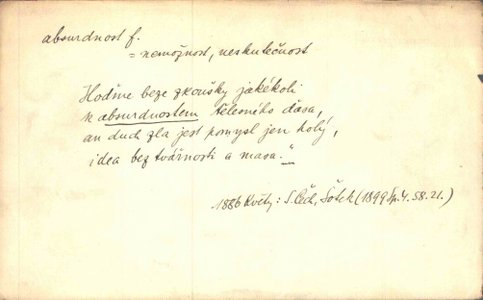 absurdnost f.
= nemožnost, neskutečnost
Hoďme beze zkoušky jakékoli
k absurdnostem tělesného ďasa,
an duch zla jest pomysl jen holý,
idea bez tvářnosti a masa."
1886 Květy: S. Čech, Šotek (1899 Sp. 4. 58. 21.)